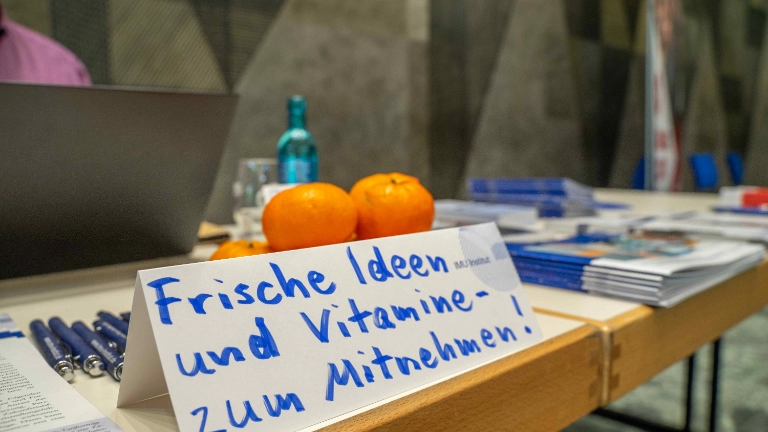 Frische Ideen
und Vitamine-
zum Mitnehmen!
IMU Institut